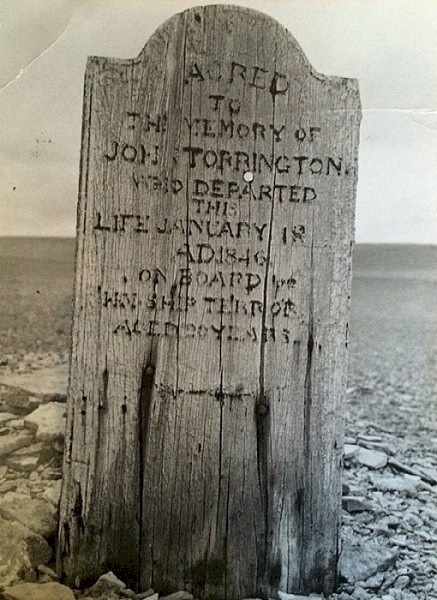 SACRED
TO
THE MEMORY OF
JOHN TORRINGTON
WHO DEPARTED
THIS
LIFE JANUARY 1
AD 1846
ON BOARD
H M SHIP TERROR
AGED 20 YEARS